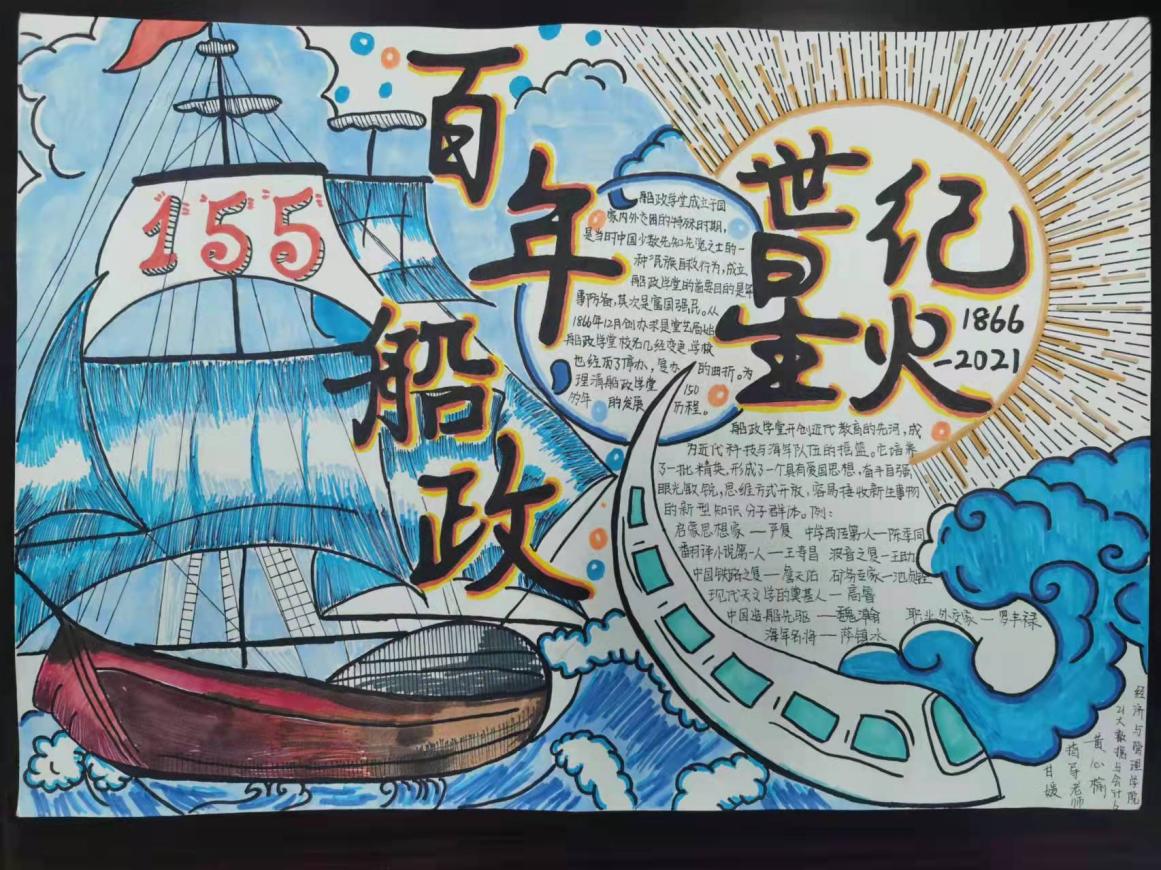 155
百年船政
世纪星火
1866
-2021
船政学堂成立于国
家内外交困的特殊时期,
是当时中国少数先知先觉之士的一
种民族自救行为,成立
船政学堂的首要目的是军
事防备,其次是富国强民。从
1866年12月创办求是堂艺局始
船政学堂校名几经变更,学校
也经历了停办,复办 的曲折。为
理清船政学堂 150
的发展 历程。
船政学堂开创近代教育的先河,成
为近代科技与海军队伍的摇篮。它培养
了一批精英,形成了一个具有爱国思想,奋斗自强,
眼光敏锐,思维方式开放,容易接收新生事物
的新型知识分子群体。例:
启蒙思想家——严复 中学西渐第一人—陈季同
翻译小说第一人—王寿昌 波音之复—王助
中国铁路之复—詹天佑 矿务专家—池贞铨
现代天文学的奠基人—高鲁
中国造船先驱——魏瀚 职业外交家—罗丰禄
海军名将—萨镇冰
经济与管理学院
21大数据与会计
黄心榆
指导老师
甘媛